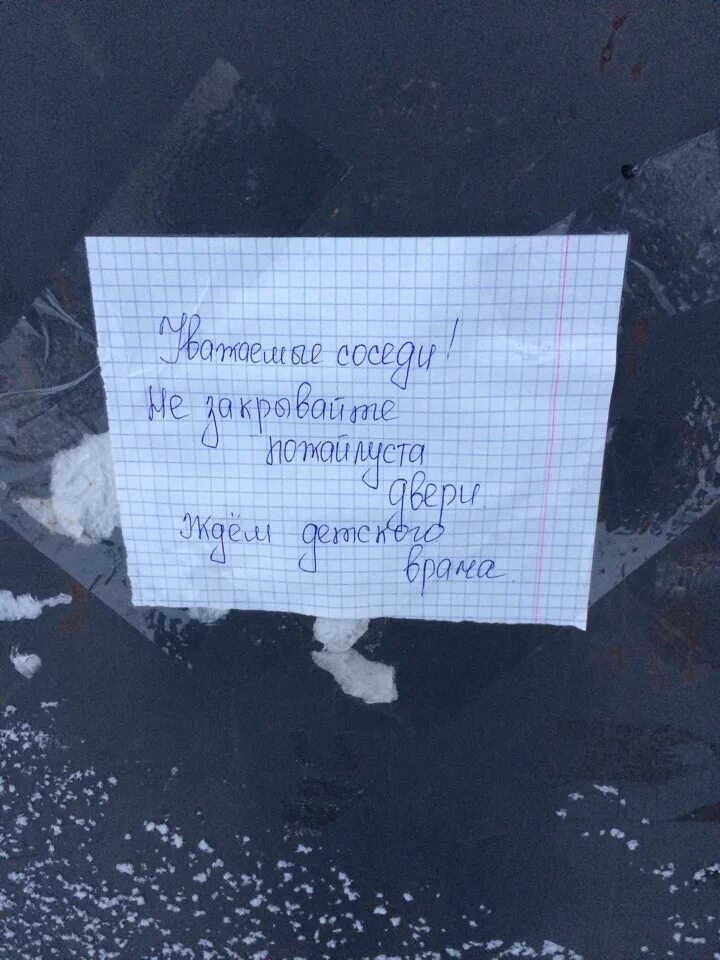 Уважаемые соседи!
Не закрывайте
пожайлуста
двери.
Ждём детского
врача.